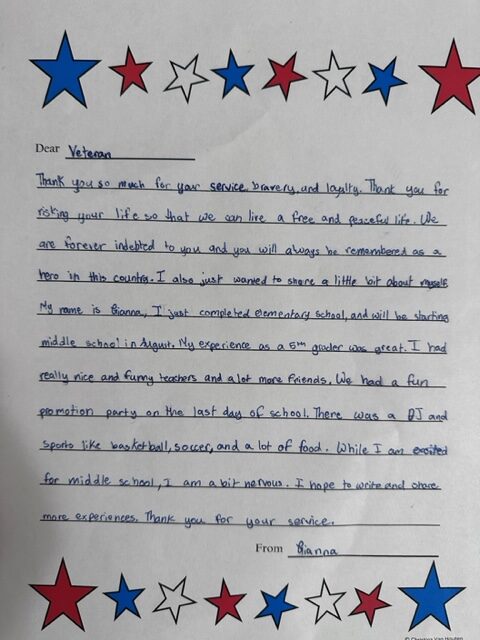 Dear Veteran
Thank you so much for your service, bravery, and loyalty. Thank you for
risking your life so that we can live a free and peaceful life. We
are forever indebted to you and you will always be remembered as a
hero in this country. I also just wanted to share a little bit about myself.
My name is Gianna, I just completed elementary school, and will be starting
middle school in August. My experience as a 5th grader was great. I had
really nice and funny teachers and a lot more friends. We had a fun
promotion party on the last day of school. There was a DJ and
sports like basketball, soccer, and a lot of food. While I am excited
for middle school, I am a bit nervous. I hope to write and share
more experiences. Thank you for your service.
From Gianna
© Christina Van Houten